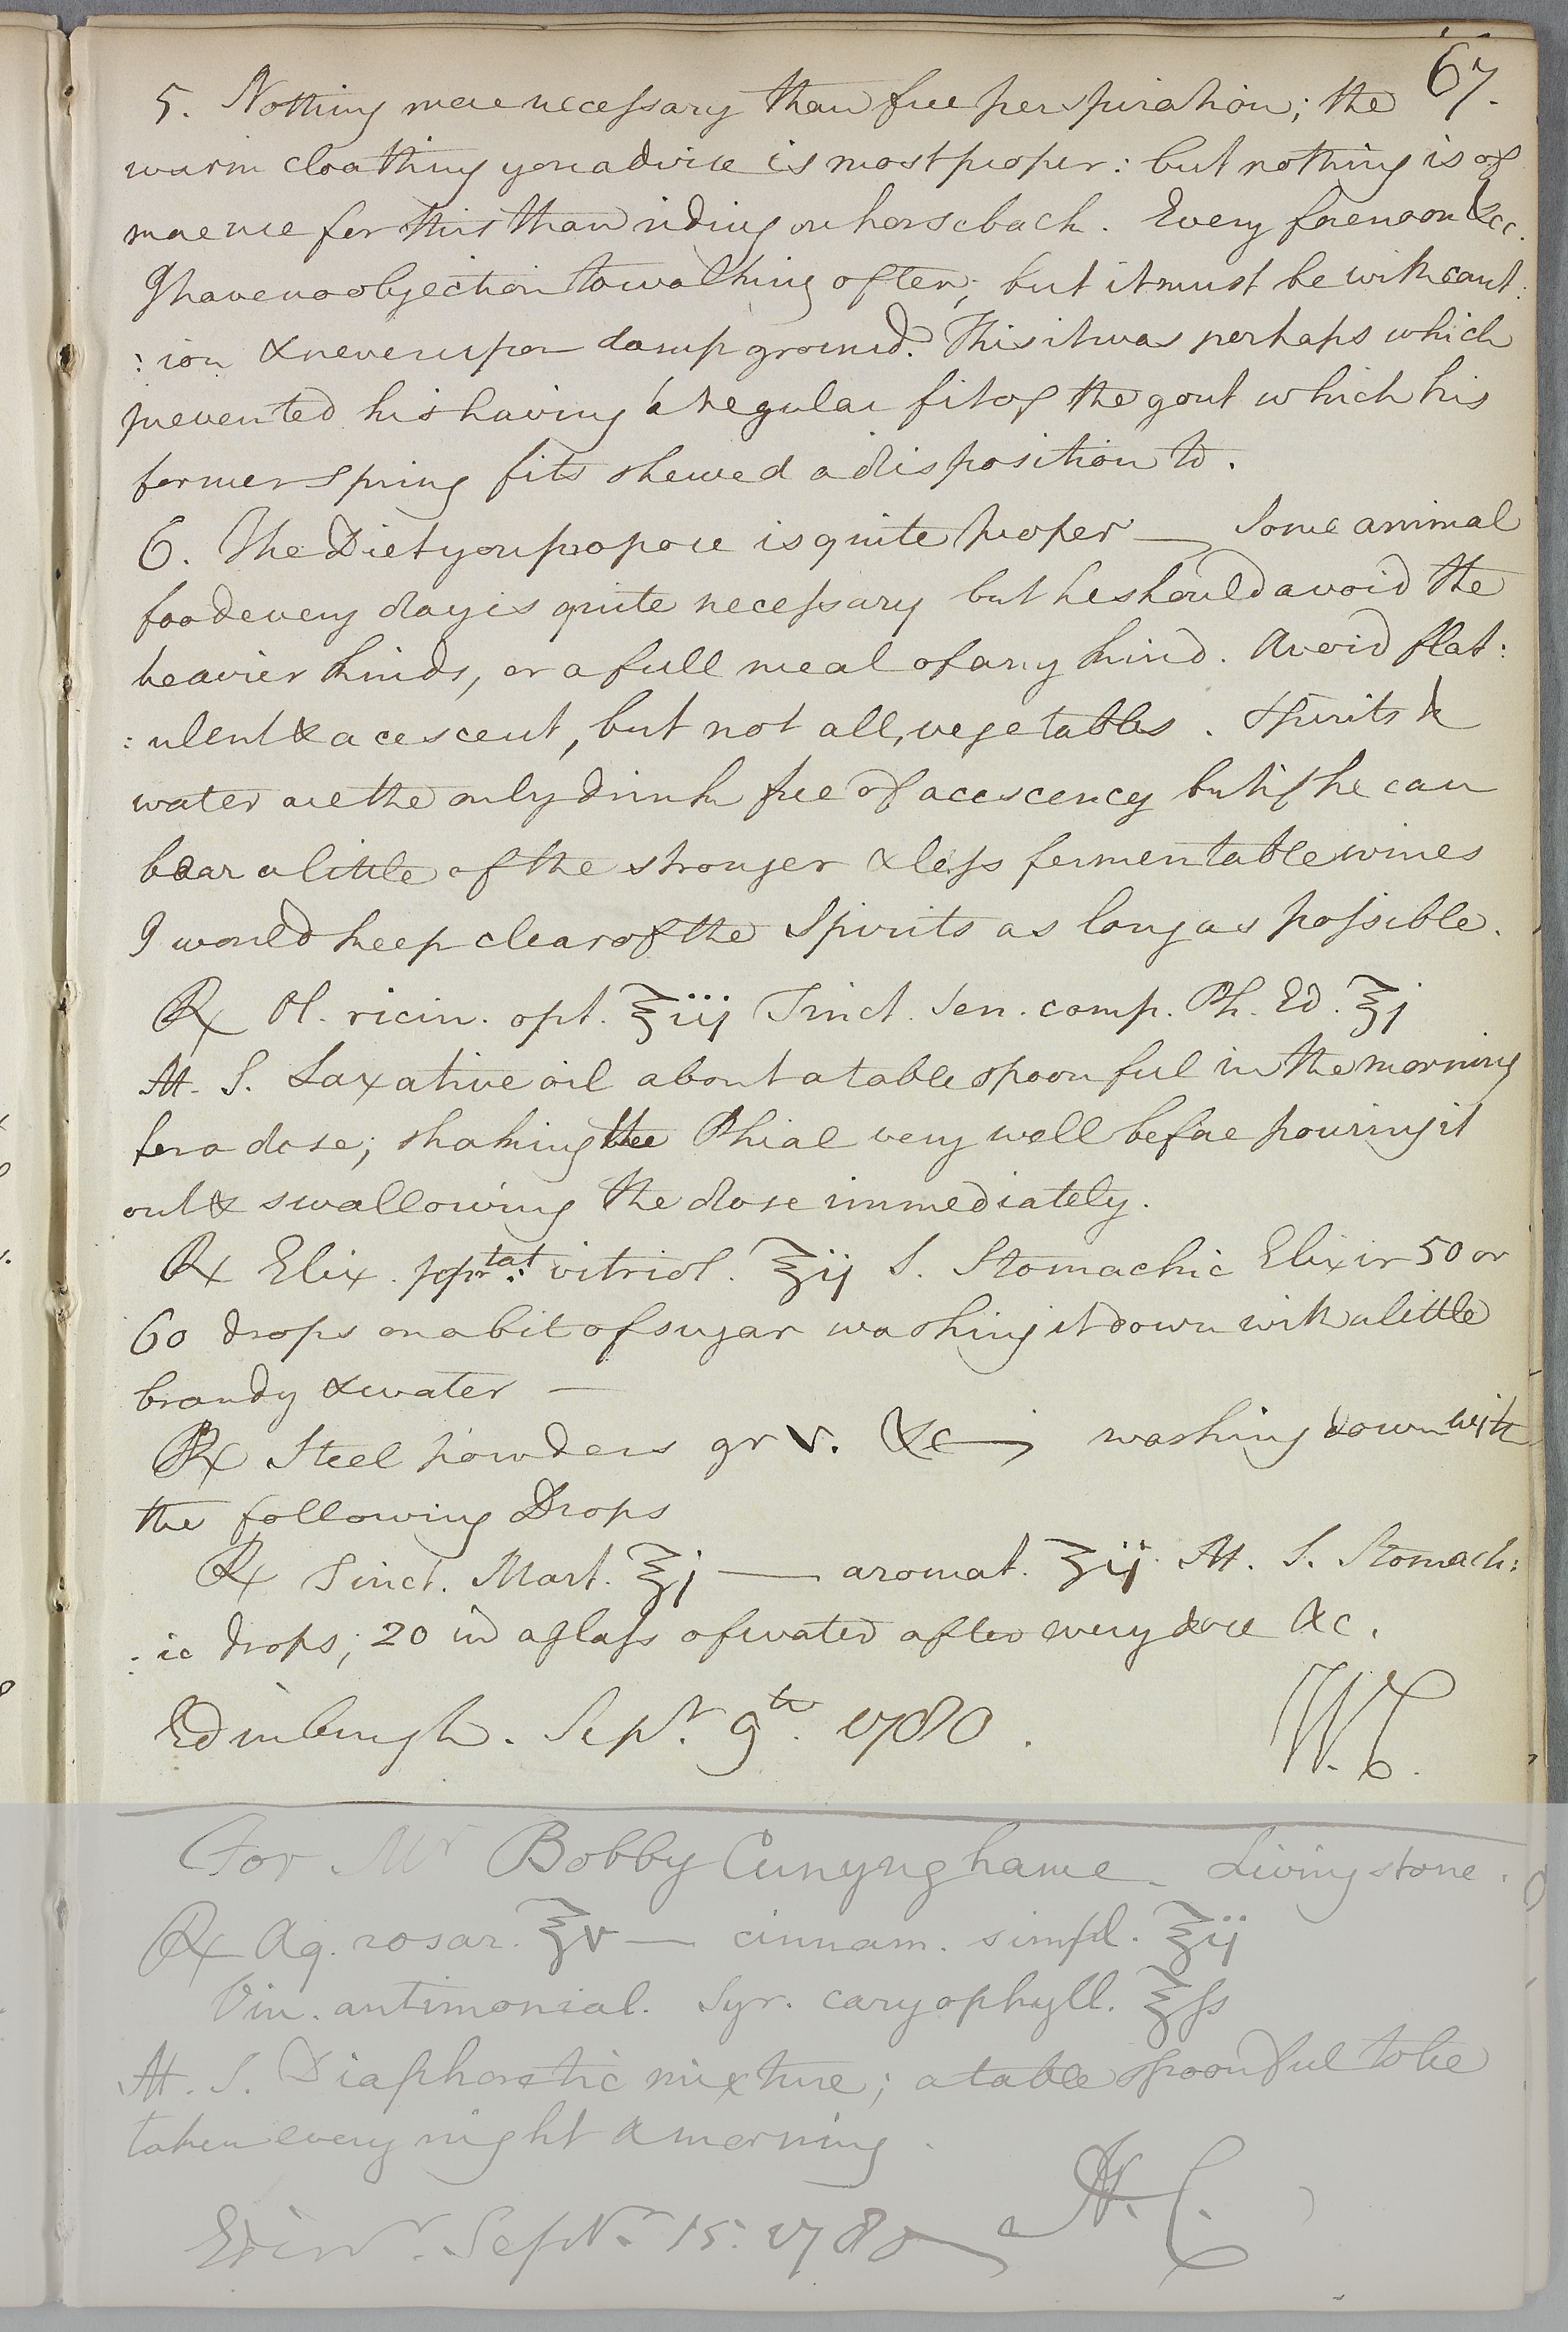 67.
5. Nothing more necessary than free perspiration; the
warm cloathing you advise is most proper: but nothing is of
more use for this than riding on horseback. Every forenoon &c.
I have no objection to walking often; but it must be with caut:
:ion & never upon damp ground. This it was perhaps which
prevented his having a regular fit of the gout which his
former Spring fits shewed a disposition to.
6. The Diet you propose is quite proper — Some animal
food every day is quite necessary but he should avoid the
heavier kinds, or a full meal of any kind. Avoid flat:
:ulent & acescent, but not all, vegetables. Spirits &
water are the only drink free of acescency but if he can
bear a little of the stronger & less fermentable wines
I would keep clear of the Spirits as long as possible.
℞ Ol. ricin. opt. ℥iij Tinct. Sen. comp. Ph. Ed. ℥j
M. S. Laxative oil about a table spoonful in the morning
for a dose; shaking the Phial very well before pouring it
out & swallowing the dose immediately.
℞ Elix. ppr tat: vitriol. ℥ij S. Stomachic Elixir 50 or
60 drops on a bit of sugar washing it down with a little
brandy & water —
℞ Steel powders gr V. &c — washing down with
the following Drops
℞ Tinct. Mart. ℥j — aromat. ʒij M. S. Stomach:
:ic drops; 20 in a glass of water after every dose &c.
Edinburgh. Sept. 9th. 1780. W.C.
For Mr Bobby Cunynghame. Livingstone.
℞ Aq. rosar. ℥v — cinnam. simpl. ℥ij
Vin. antimonial. Syr. caryophyll. ℥ſs
M. S. Diaphoretic mixture; a table spoonful to be
taken every night & morning.
Edinr. Septr. 15. 1780 W.C.